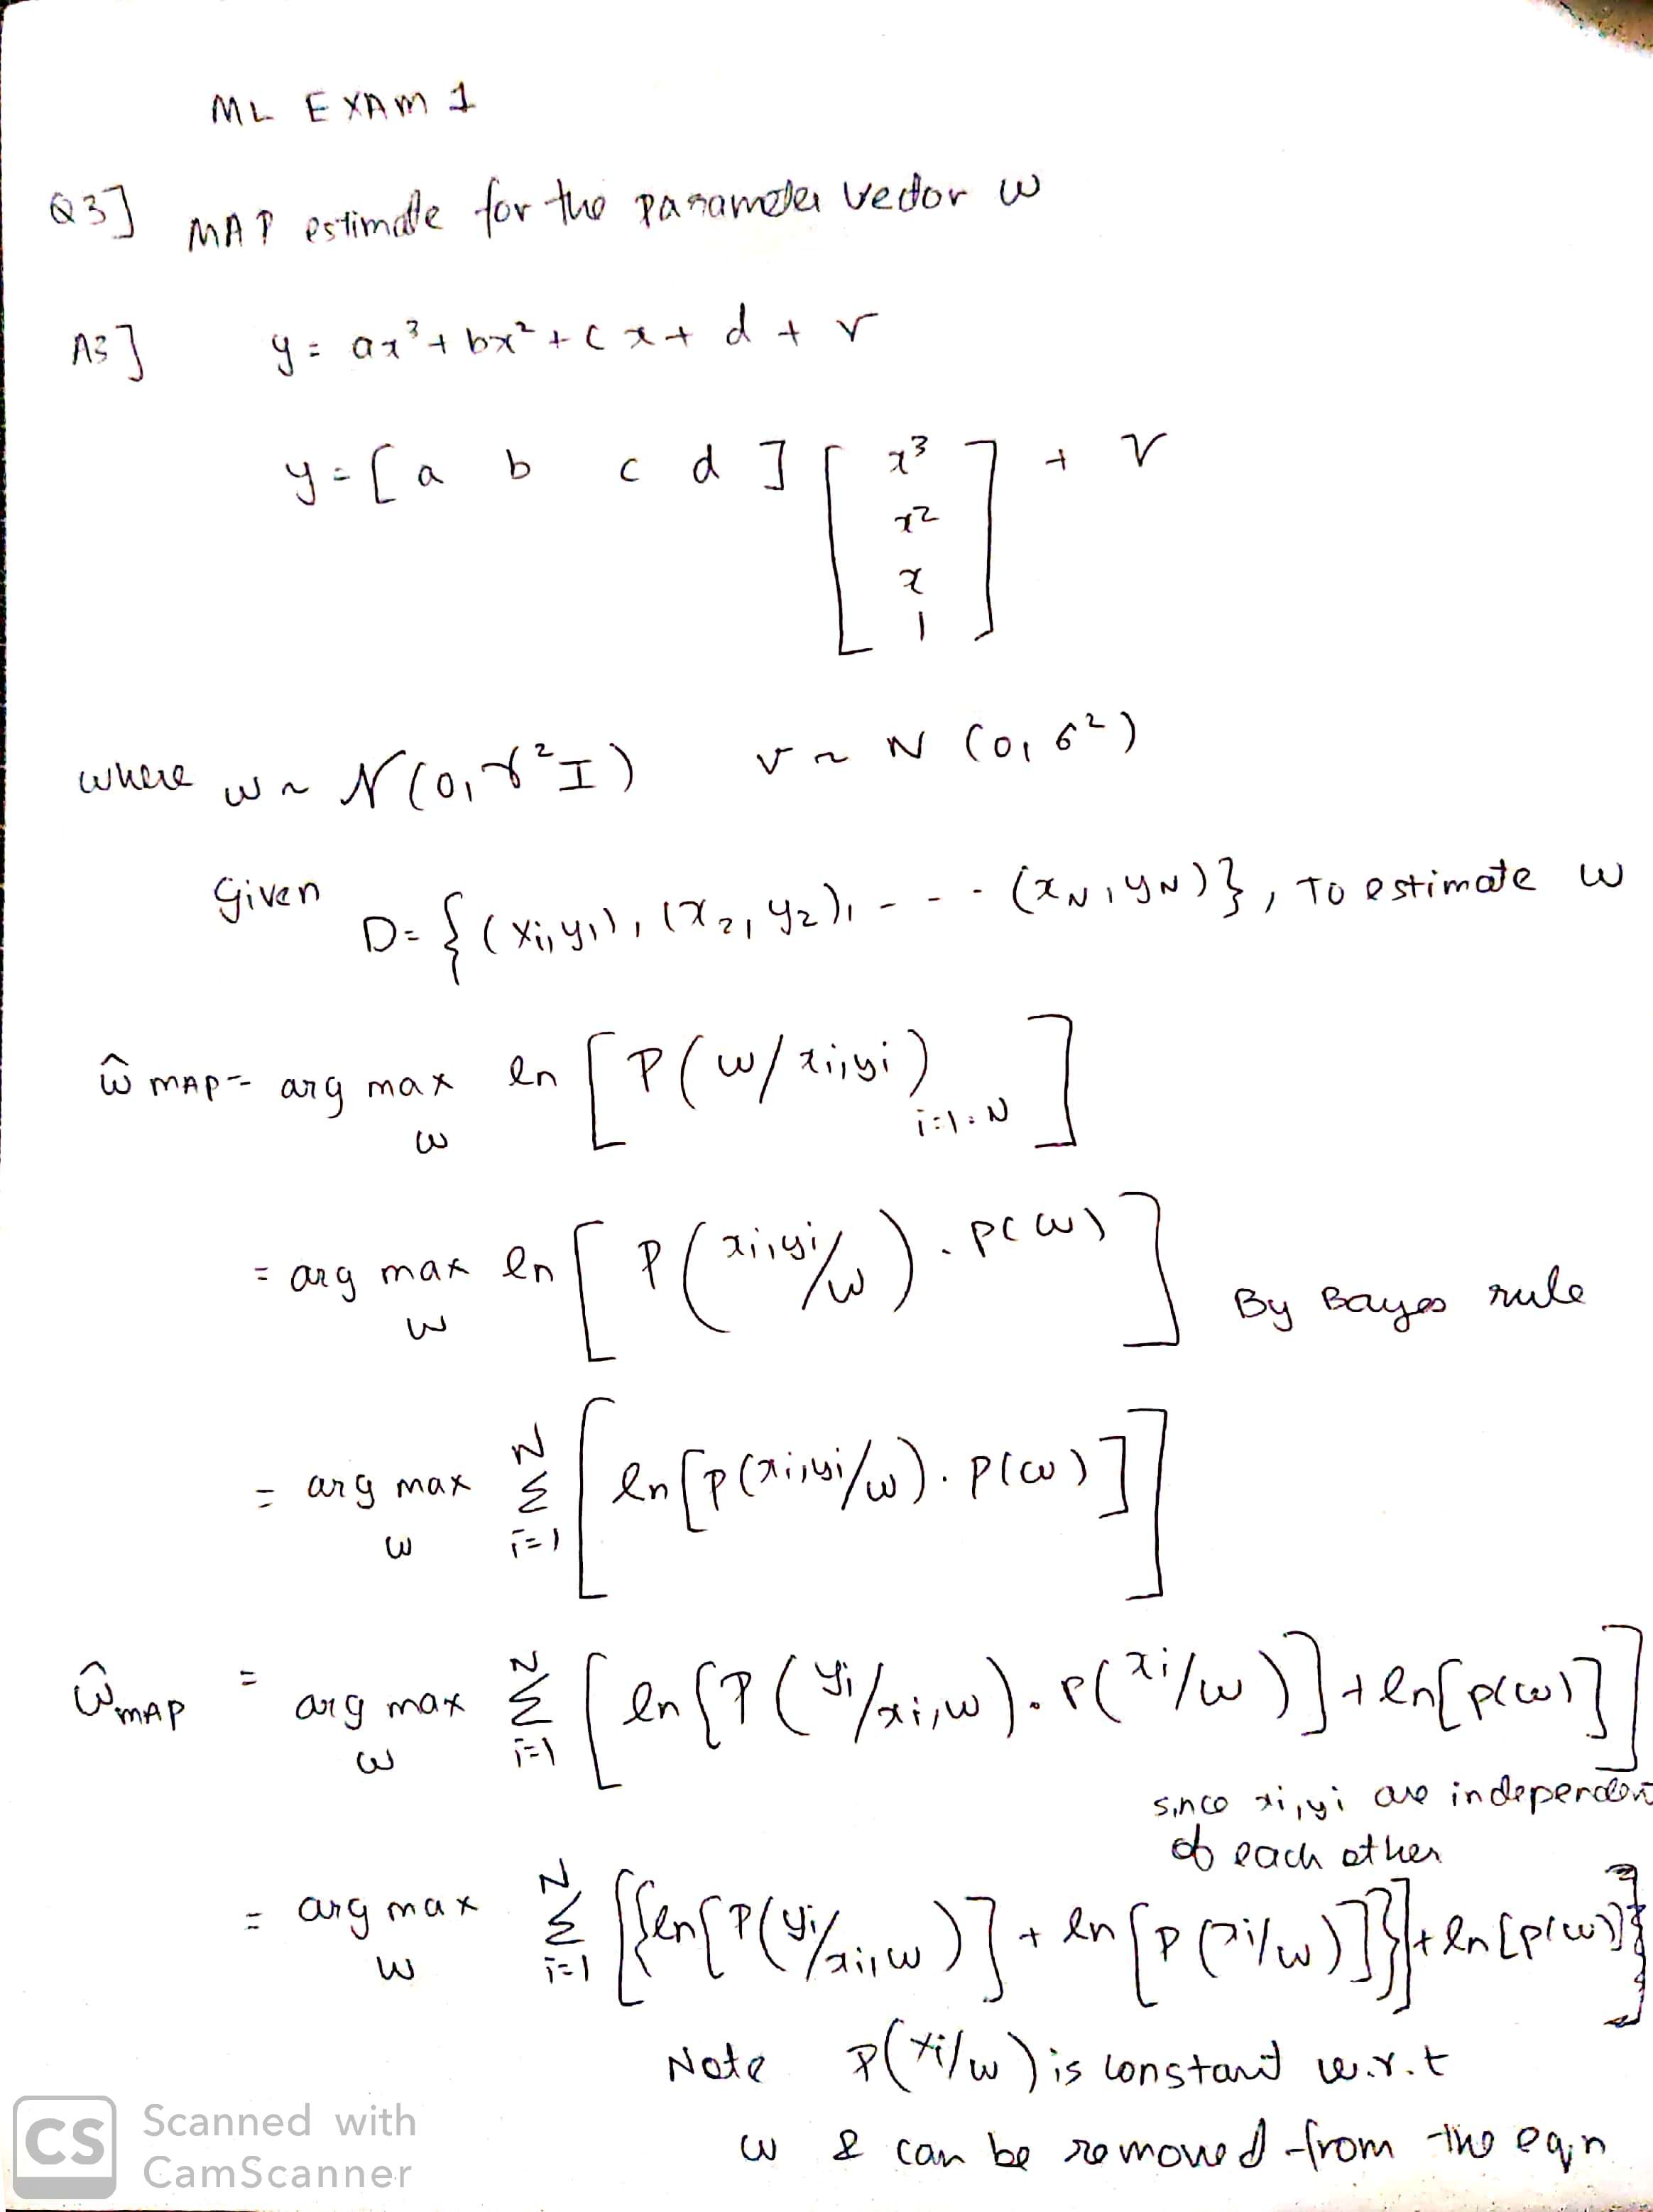 ML EXAM 1
Q3] MAP estimate for the parameter vector w
A3] y = ax³ + bx² + cx + d + v
y = [a b c d] [x³ + v
x²
x
1]
where w ~ N(0, γ²I) v ~ N(0, σ²)
Given D = {(x₁,y₁), (x₂,y₂), - - - (x_N, y_N)}, To estimate w
ŵ MAP = arg max ln [P(w/xi,yi)
w i=1:N]
= arg max ln [P(xi,yi/w) . P(w)]
w By Bayes rule
= arg max N Σ i=1 [ln[P(xi,yi/w). P(w)]]
w
ŵ MAP = arg max N Σ i=1 [ln[P(yi/xi,w). P(xi/w)] + ln[P(w)]]
w
since xi,yi are independent
of each other
= arg max N Σ i=1 [{ln[P(yi/xi,w)] + ln[P(xi/w)]}] + ln[P(w)]}]
w
Note P(xi/w) is constant w.r.t
w & can be removed from the eqn
CS Scanned with
CamScanner